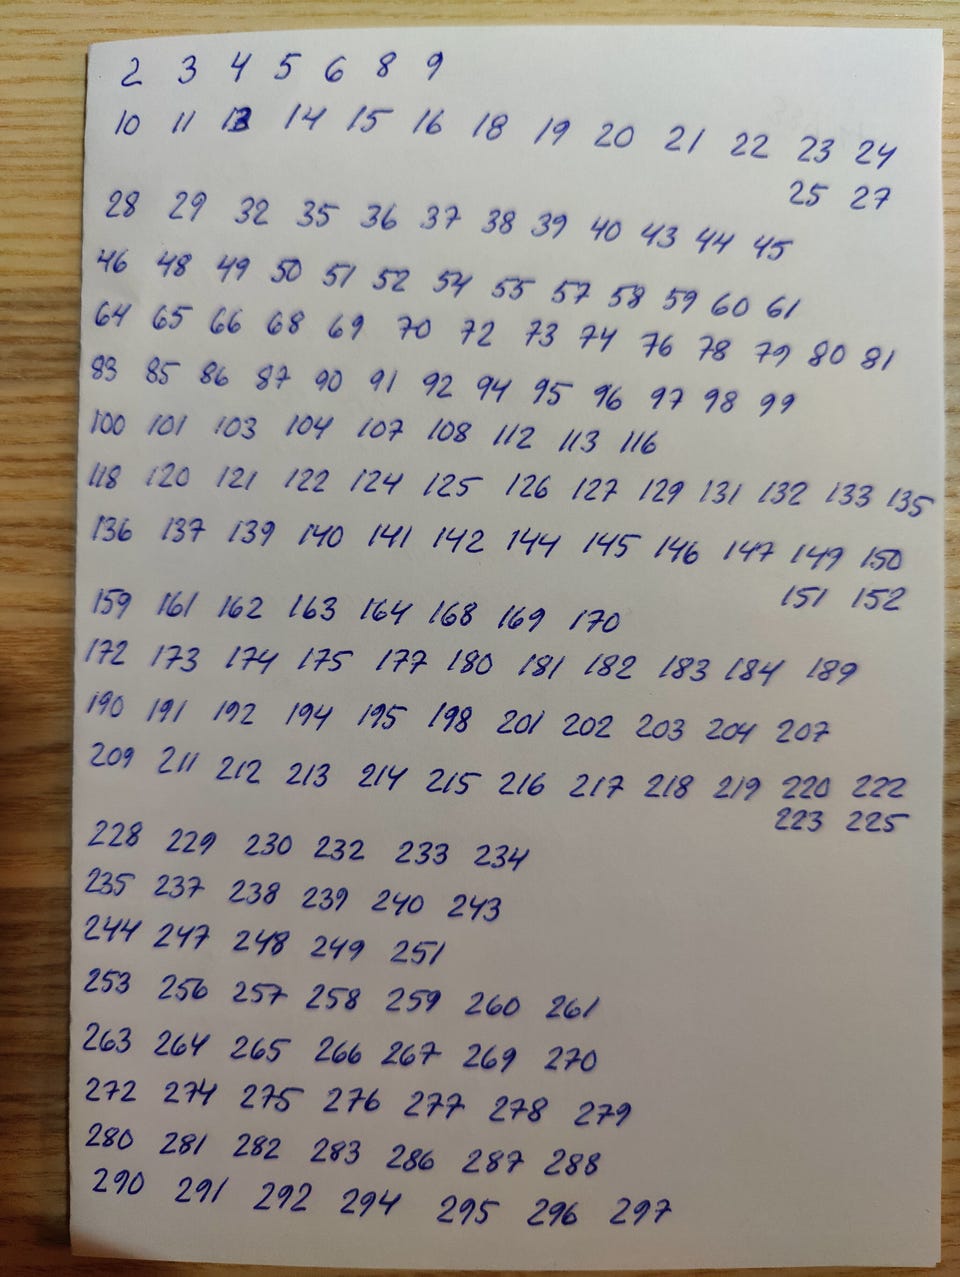 2 3 4 5 6 8 9
10 11 13 14 15 16 18 19 20 21 22 23 24
25 27
28 29 32 35 36 37 38 39 40 43 44 45
46 48 49 50 51 52 54 55 57 58 59 60 61
64 65 66 68 69 70 72 73 74 76 78 79 80 81
83 85 86 87 90 91 92 94 95 96 97 98 99
100 101 103 104 107 108 112 113 116
118 120 121 122 124 125 126 127 129 131 132 133 135
136 137 139 140 141 142 144 145 146 147 149 150
151 152
159 161 162 163 164 168 169 170
172 173 174 175 177 180 181 182 183 184 189
190 191 192 194 195 198 201 202 203 204 207
209 211 212 213 214 215 216 217 218 219 220 222
223 225
228 229 230 232 233 234
235 237 238 239 240 243
244 247 248 249 251
253 256 257 258 259 260 261
263 264 265 266 267 269 270
272 274 275 276 277 278 279
280 281 282 283 286 287 288
290 291 292 294 295 296 297